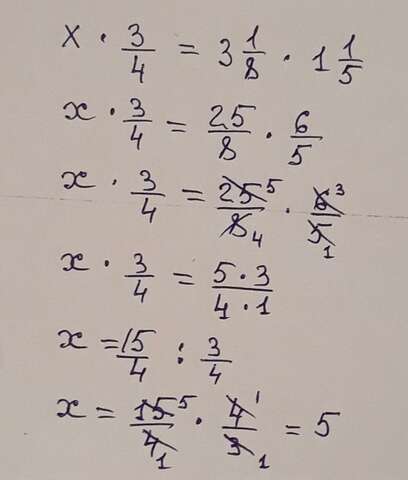 x · 3/4 = 3 1/8 · 1 1/5
x · 3/4 = 25/8 · 6/5
x · 3/4 = 25 5/8 4 · 6 3/5 1
x · 3/4 = 5 · 3/4 · 1
x = 15/4 : 3/4
x = 15 5/4 1 · 4 1/3 1 = 5